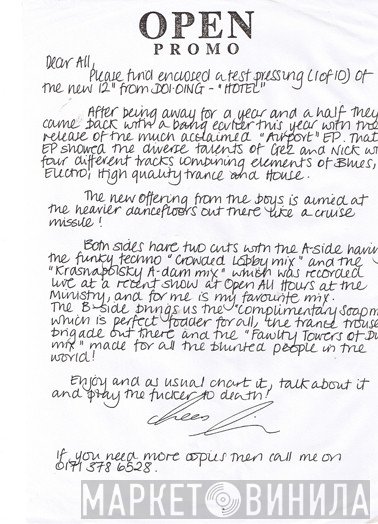 OPEN
PROMO
Dear All,
Please find enclosed a test pressing (1 of 10) of
the new 12" from DOI-OING - "HOTEL"
After being away for a year and a half they
came back with a bang earlier this year with the
release of the much acclaimed "Airport" EP. That
EP showed the diverse talents of Gez and Nick with
four different tracks combining elements of Blues,
Electro, High quality trance and House.
The new offering from the boys is aimed at
the heavier dancefloors out there like a cruise
missile!
Both sides have two cuts with the A-side havin
the funky techno "Crowded Lobby mix" and the
"Krasnapolsky A-dam mix" which was recorded
live at a recent show at Open All Hours at the
Ministry, and for me is my favourite mix.
The B-side brings us the "Complimentary Soap m
which is perfect fodder for all, the trance trouse
brigade out there and the "Fawlty Towers of Du
mix" made for all the blunted people in the
world!
Enjoy and as usual chart it, talk about it
and play the fucker to death!
Cheers
If you need more copies then call me on
0171 378 6528.
МАРКЕТ ВИНИЛА